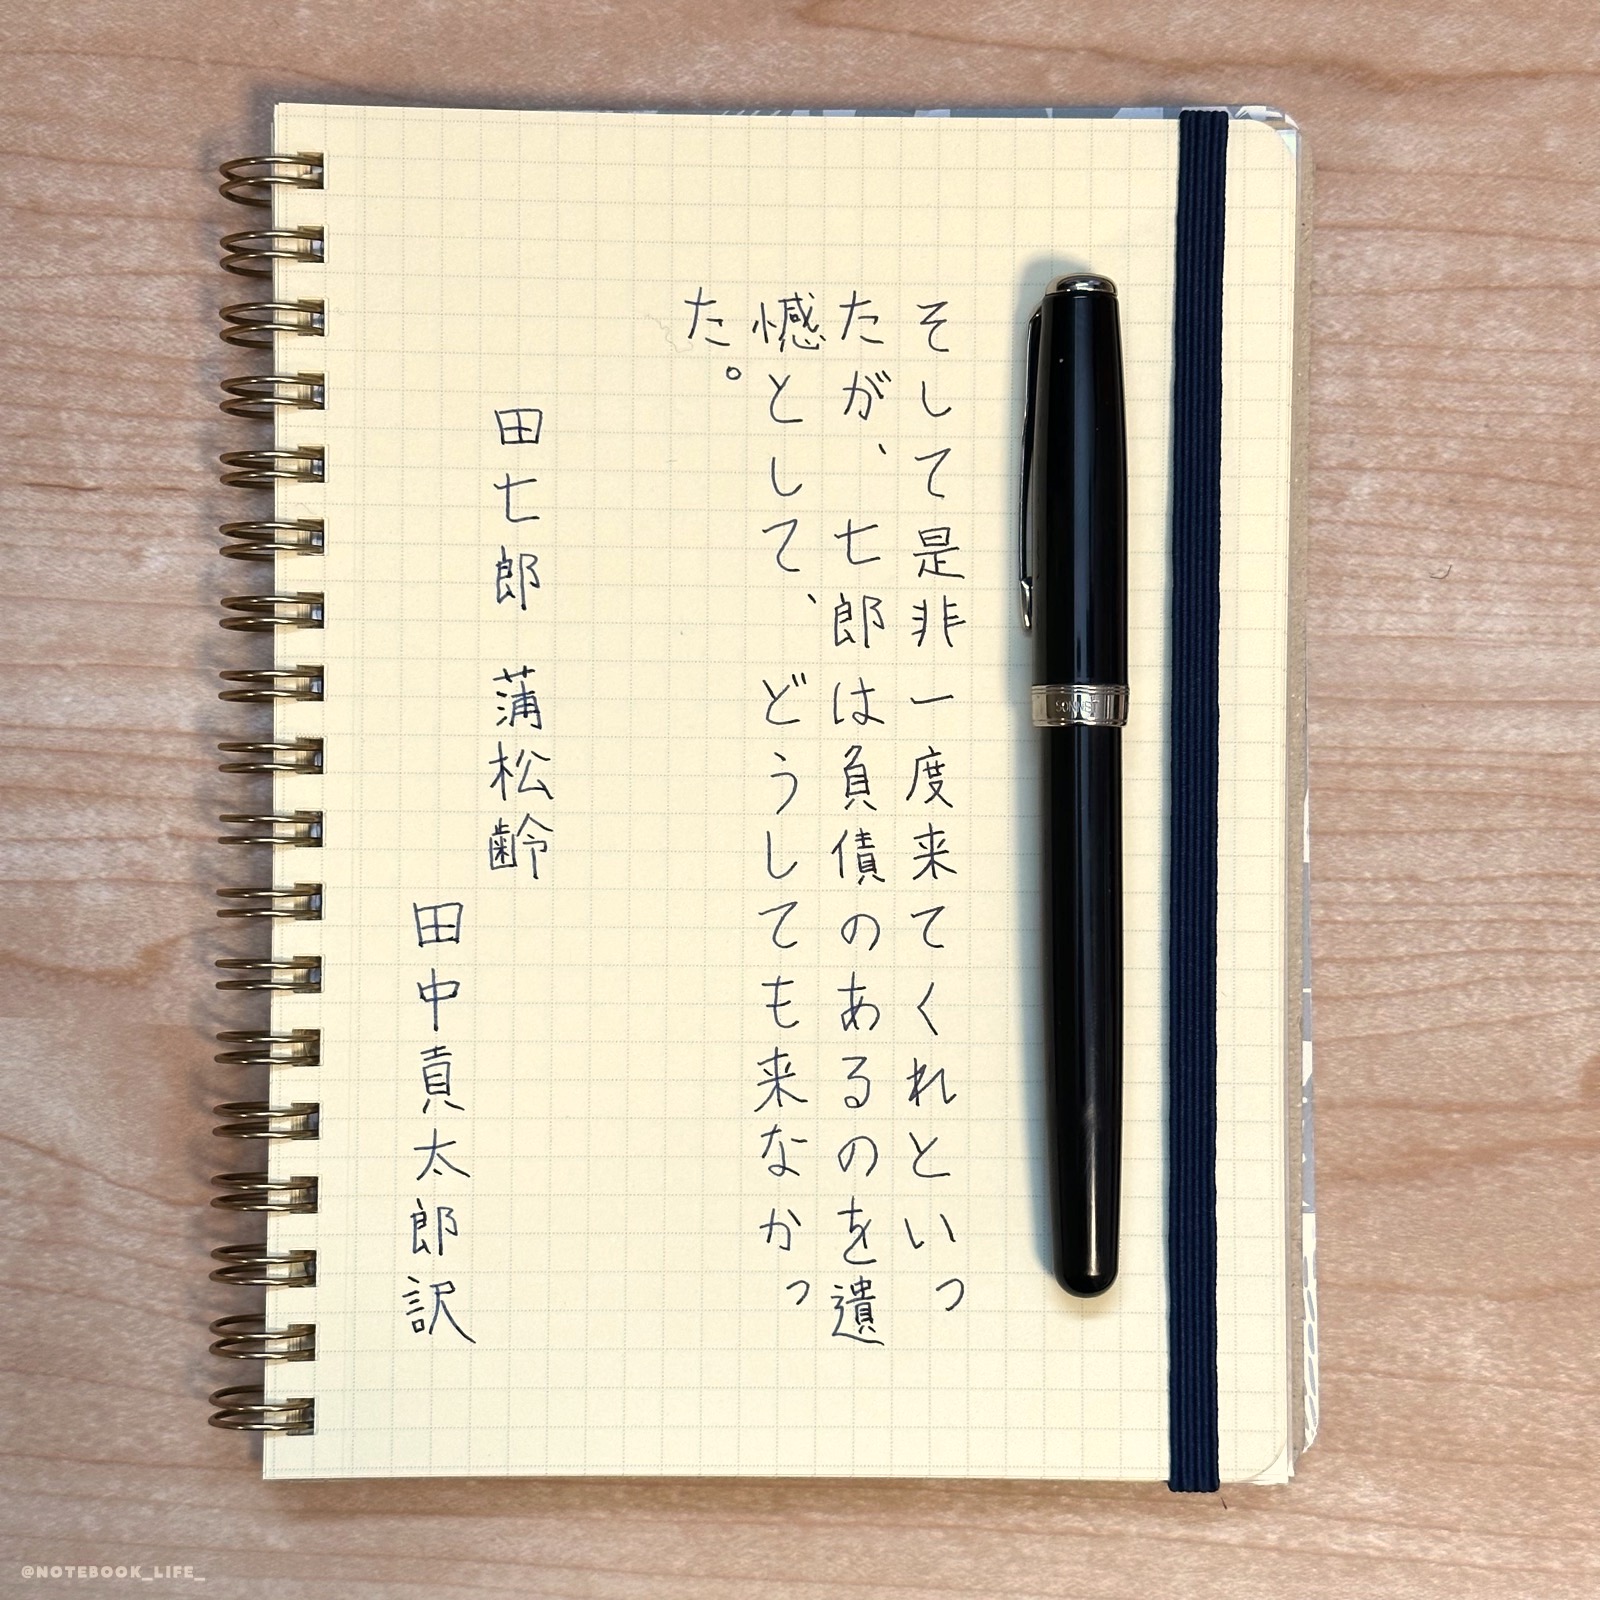 そして是非一度来てくれといっ
たが、七郎は負債のあるのを遺
憾として、どうしても来なかっ
た。
田七郎　蒲松齢
田中貢太郎訳
SONNET
@NOTEBOOK_LIFE_